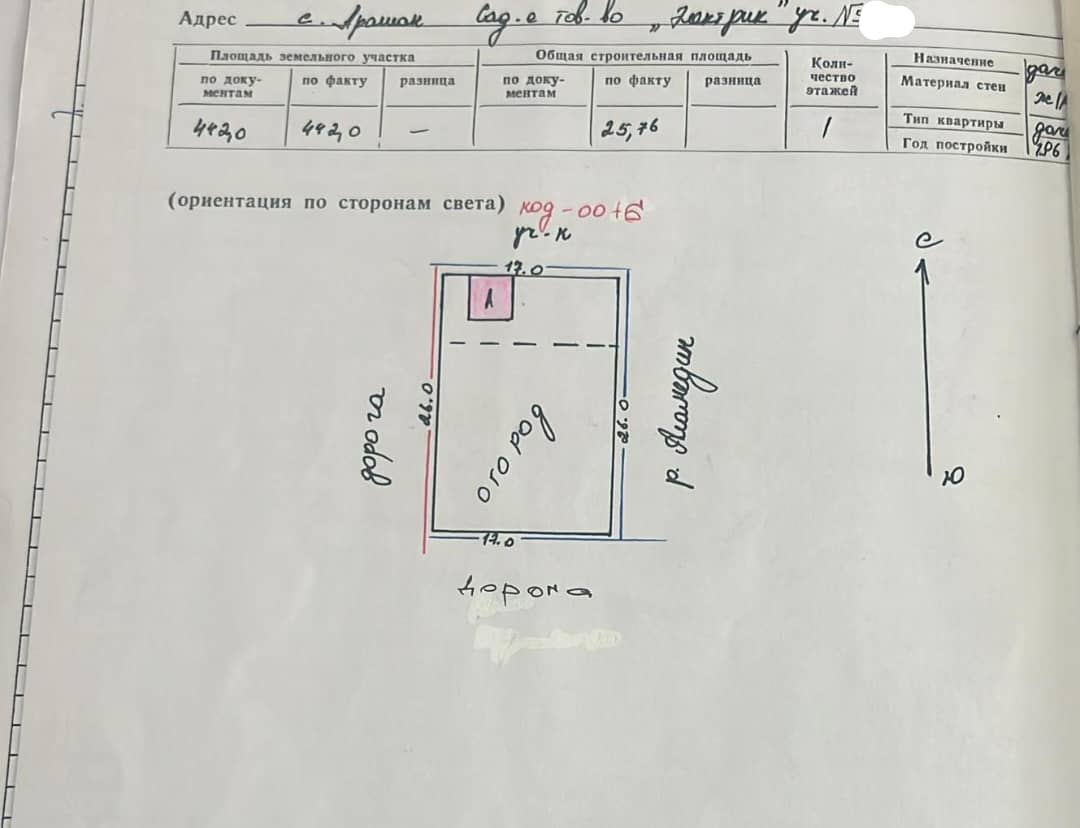 Адрес с. Арашан Сад. е тов-во „Электрик" уч. №
Площадь земельного участка
Общая строительная площадь
Коли-
чество
этажей
Назначение дач
по доку-
ментам
по факту
разница
по доку-
ментам
по факту
разница
Материал стен ж/
442,0
442,0
—
25,76
1
Тип квартиры дач
Год постройки 1996
(ориентация по сторонам света) код-00+б
уч-к
17.0
С
А
дорога
26.0
огород
26.0
р. Аламедин
Ю
17.0
дорога